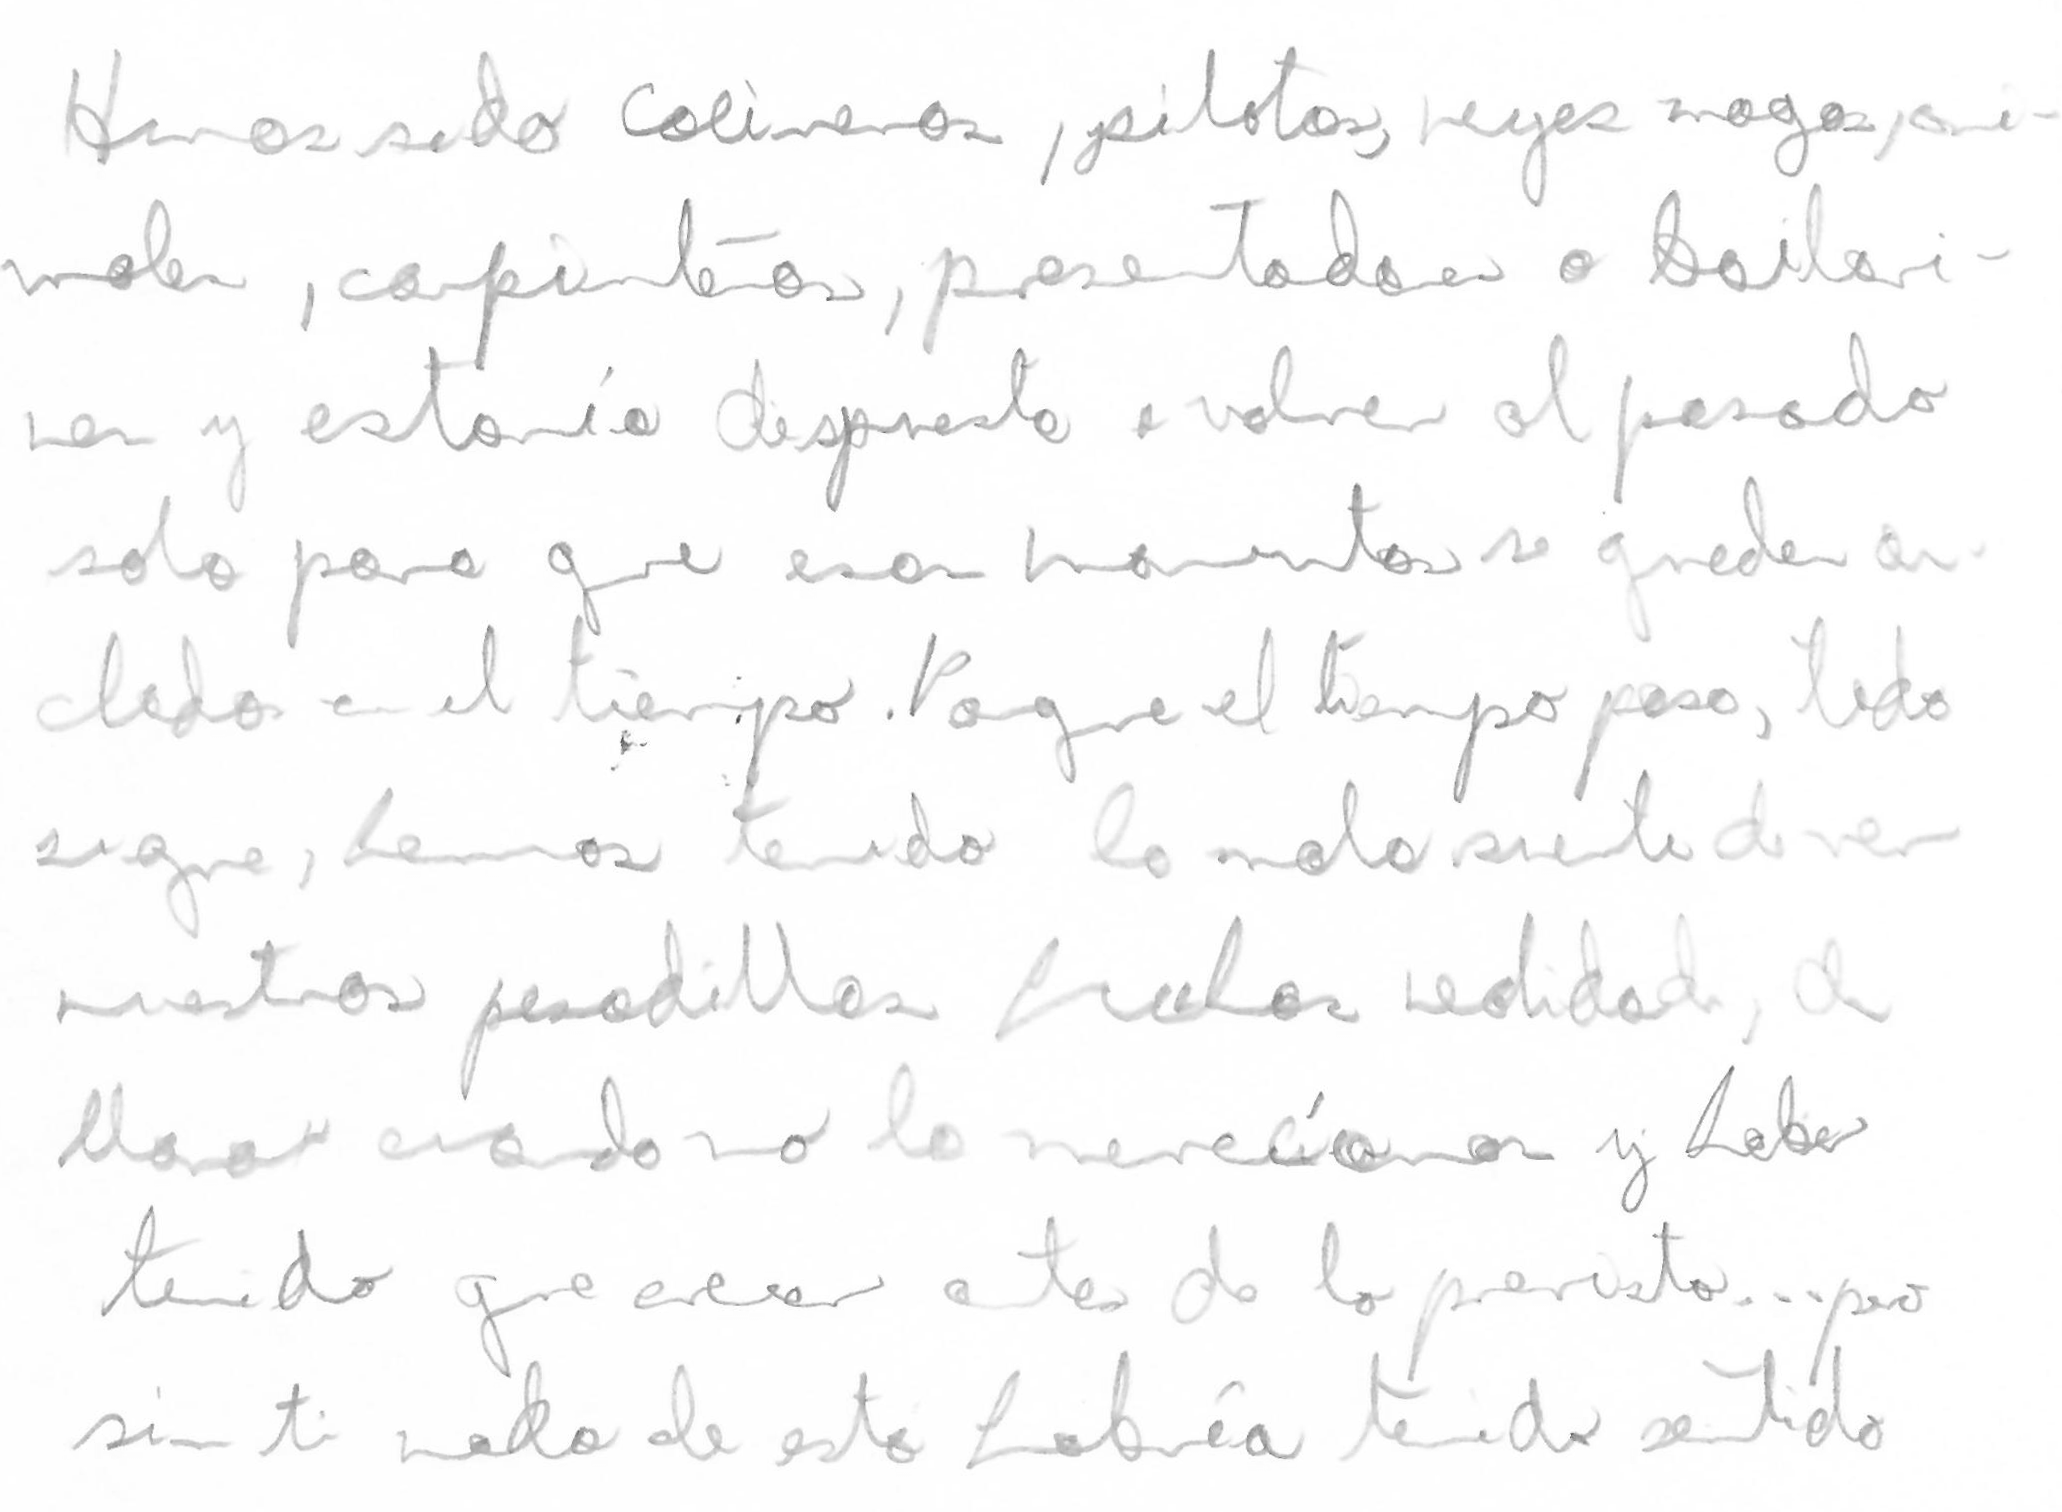 Hemos sido cocineros, pilotos, reyes magos, ani-
males, carpinteros, presentadores o bailari-
nes y estaría dispuesto a volver al pasado
solo para que esos momentos se queden an-
clados en el tiempo. Porque el tiempo pasa, todo
sigue, hemos tenido la mala suerte de ver
nuestras pesadillas hechas realidad, de
llorar cuando no lo merecíamos y haber
tenido que crecer antes de lo previsto... pero
sin ti nada de esto habría tenido sentido